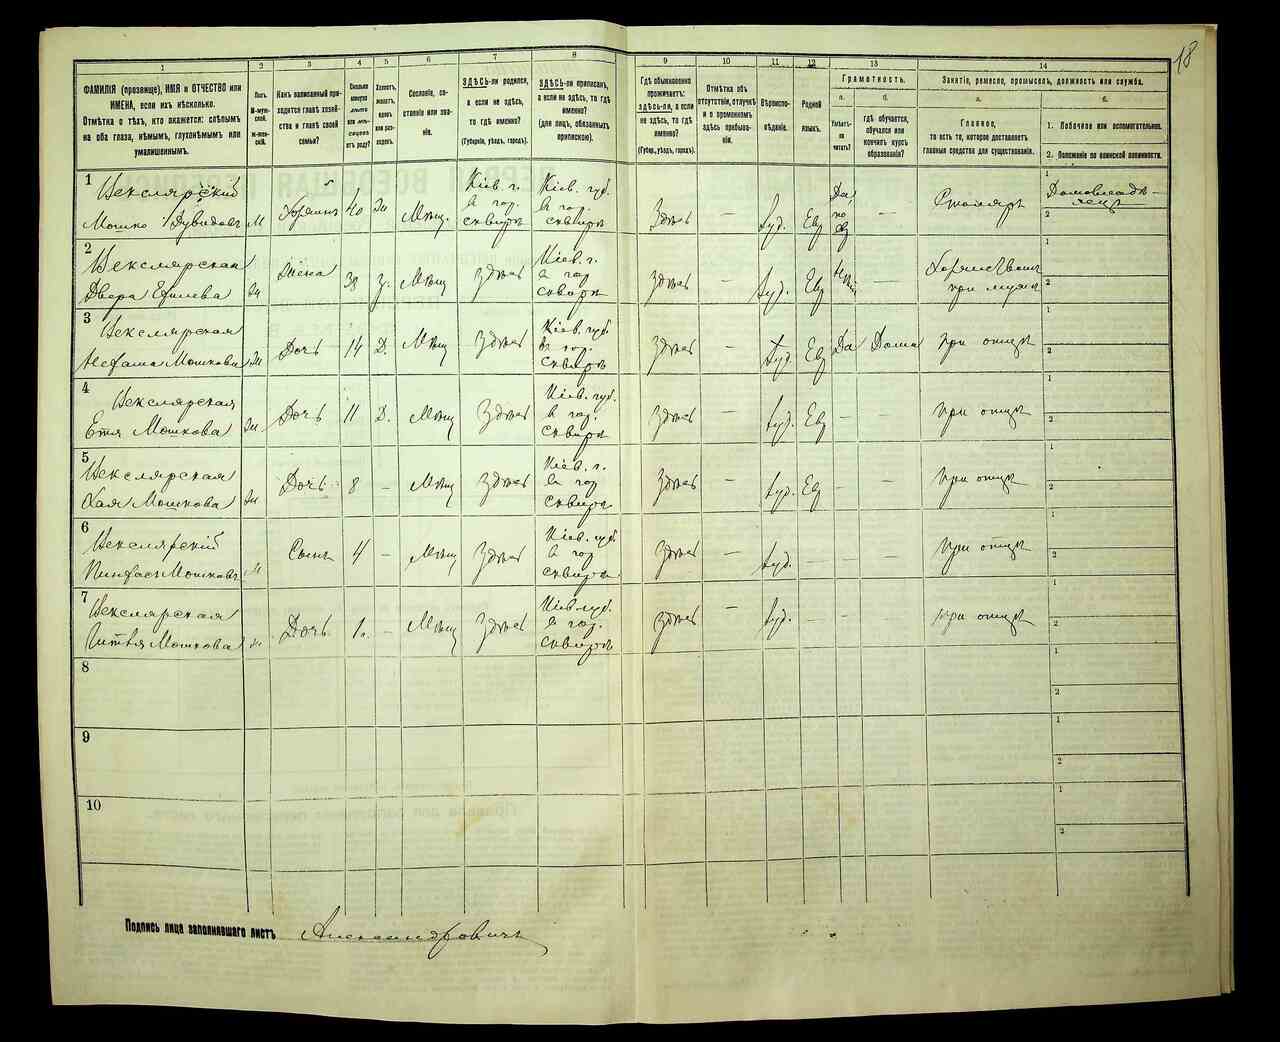 18
1
2
3
4
5
6
7
8
9
10
11
12
13
14
ФАМИЛІЯ (прозвище), ИМЯ и ОТЧЕСТВО или
ИМЕНА, если ихъ нѣсколько.
Отмѣтка о тѣхъ, кто окажется: слѣпымъ
на оба глаза, нѣмымъ, глухонѣмымъ или
умалишеннымъ.
Полъ.
М-муж-
ской.
Ж-жен-
скій.
Какъ записанный при-
ходится главѣ хозяй-
ства и главѣ своей
семьи?
Сколько
минуло
лѣтъ
или мѣ-
сяцевъ
отъ роду?
Холостъ,
женатъ,
вдовъ
или раз-
веденъ.
Сословіе, со-
стояніе или зва-
ніе.
ЗДѢСЬ-ли родился,
а если не здѣсь,
то гдѣ именно?
(Губернія, уѣздъ, городъ).
ЗДѢСЬ-ли приписанъ,
а если не здѣсь, то гдѣ
именно?
(для лицъ, обязанныхъ
припискою).
Гдѣ обыкновенно
проживаетъ:
ЗДѢСЬ-ли, а если
не здѣсь, то гдѣ
именно?
(Губер., уѣздъ, городъ).
Отмѣтка объ
отсутствіи, отлучкѣ
и о временномъ
здѣсь пребыва-
ніи.
Вѣроиспо-
вѣданіе.
Родной
языкъ.
Грамотность.
а.
Умѣетъ-
ли
читать?
б.
гдѣ обучается,
обучался или
кончилъ курсъ
образованія?
Занятіе, ремесло, промыселъ, должность или служба.
а.
Главное,
то есть то, которое доставляетъ
главныя средства для существованія.
б.
1. Побочное или вспомогательное.
2. Положеніе по воинской повинности.
1
Векслярскій
Мошко Дувидовъ М Хозяинъ 40 Ж Мѣщ. Кіев. г. в гор. Сквирѣ Кіев. губ. в гор. Сквирѣ Здѣсь — Іуд. Евр Да, по евр — Столяръ Домовладѣлецъ
2
Векслярская
Двера Ж Жена 38 З. Мѣщ Здѣсь Кіев. г. в гор Сквирѣ Здѣсь — Іуд. Евр Нѣтъ — при мужѣ
3
Векслярская
Мошкова Ж Дочь 14 Д. Мѣщ Здѣсь Кіев. губ. в гор. Сквирѣ Здѣсь — Іуд. Евр Да Дома при отцѣ
4
Векслярская
Етя Мошкова Ж Дочь 11 Д. Мѣщ Здѣсь Кіев. губ. в гор. Сквирѣ Здѣсь — Іуд. Евр — — при отцѣ
5
Векслярская
Хая Мошкова Ж Дочь 8 — Мѣщ Здѣсь Кіев. г. в гор Сквирѣ Здѣсь — Іуд. Евр — — при отцѣ
6
Векслярскій
Пинфасъ Мошковъ М Сынъ 4 — Мѣщ Здѣсь Кіев. губ. в гор Сквирѣ Здѣсь — Іуд. — — — при отцѣ
7
Векслярская
Мошкова Ж Дочь 1 — Мѣщ Здѣсь Кіев. губ. в гор. Сквирѣ Здѣсь — Іуд. — — — при отцѣ
8
9
10
Подпись лица заполнявшаго листъ Александровичъ